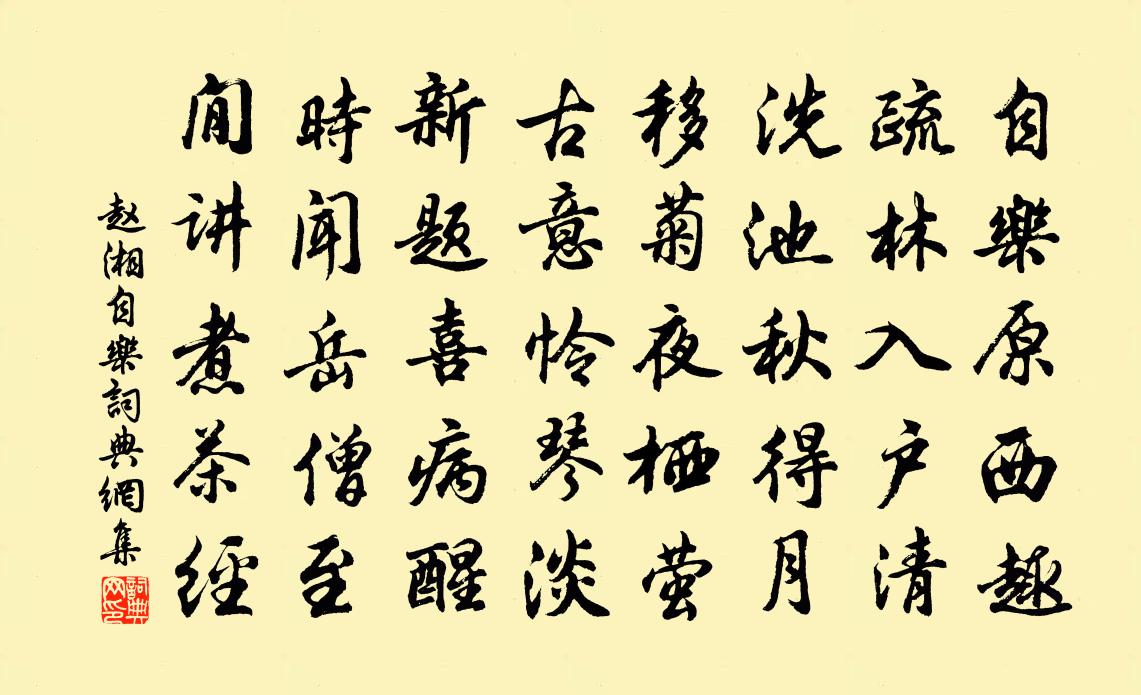 自樂原西趣
疏林入户清
洗池秋得月
移菊夜栖萤
古意怜琴淡
新题喜病醒
時闻岳僧至
闲讲煮茶經
赵湘自樂詞典網集
詞典网印